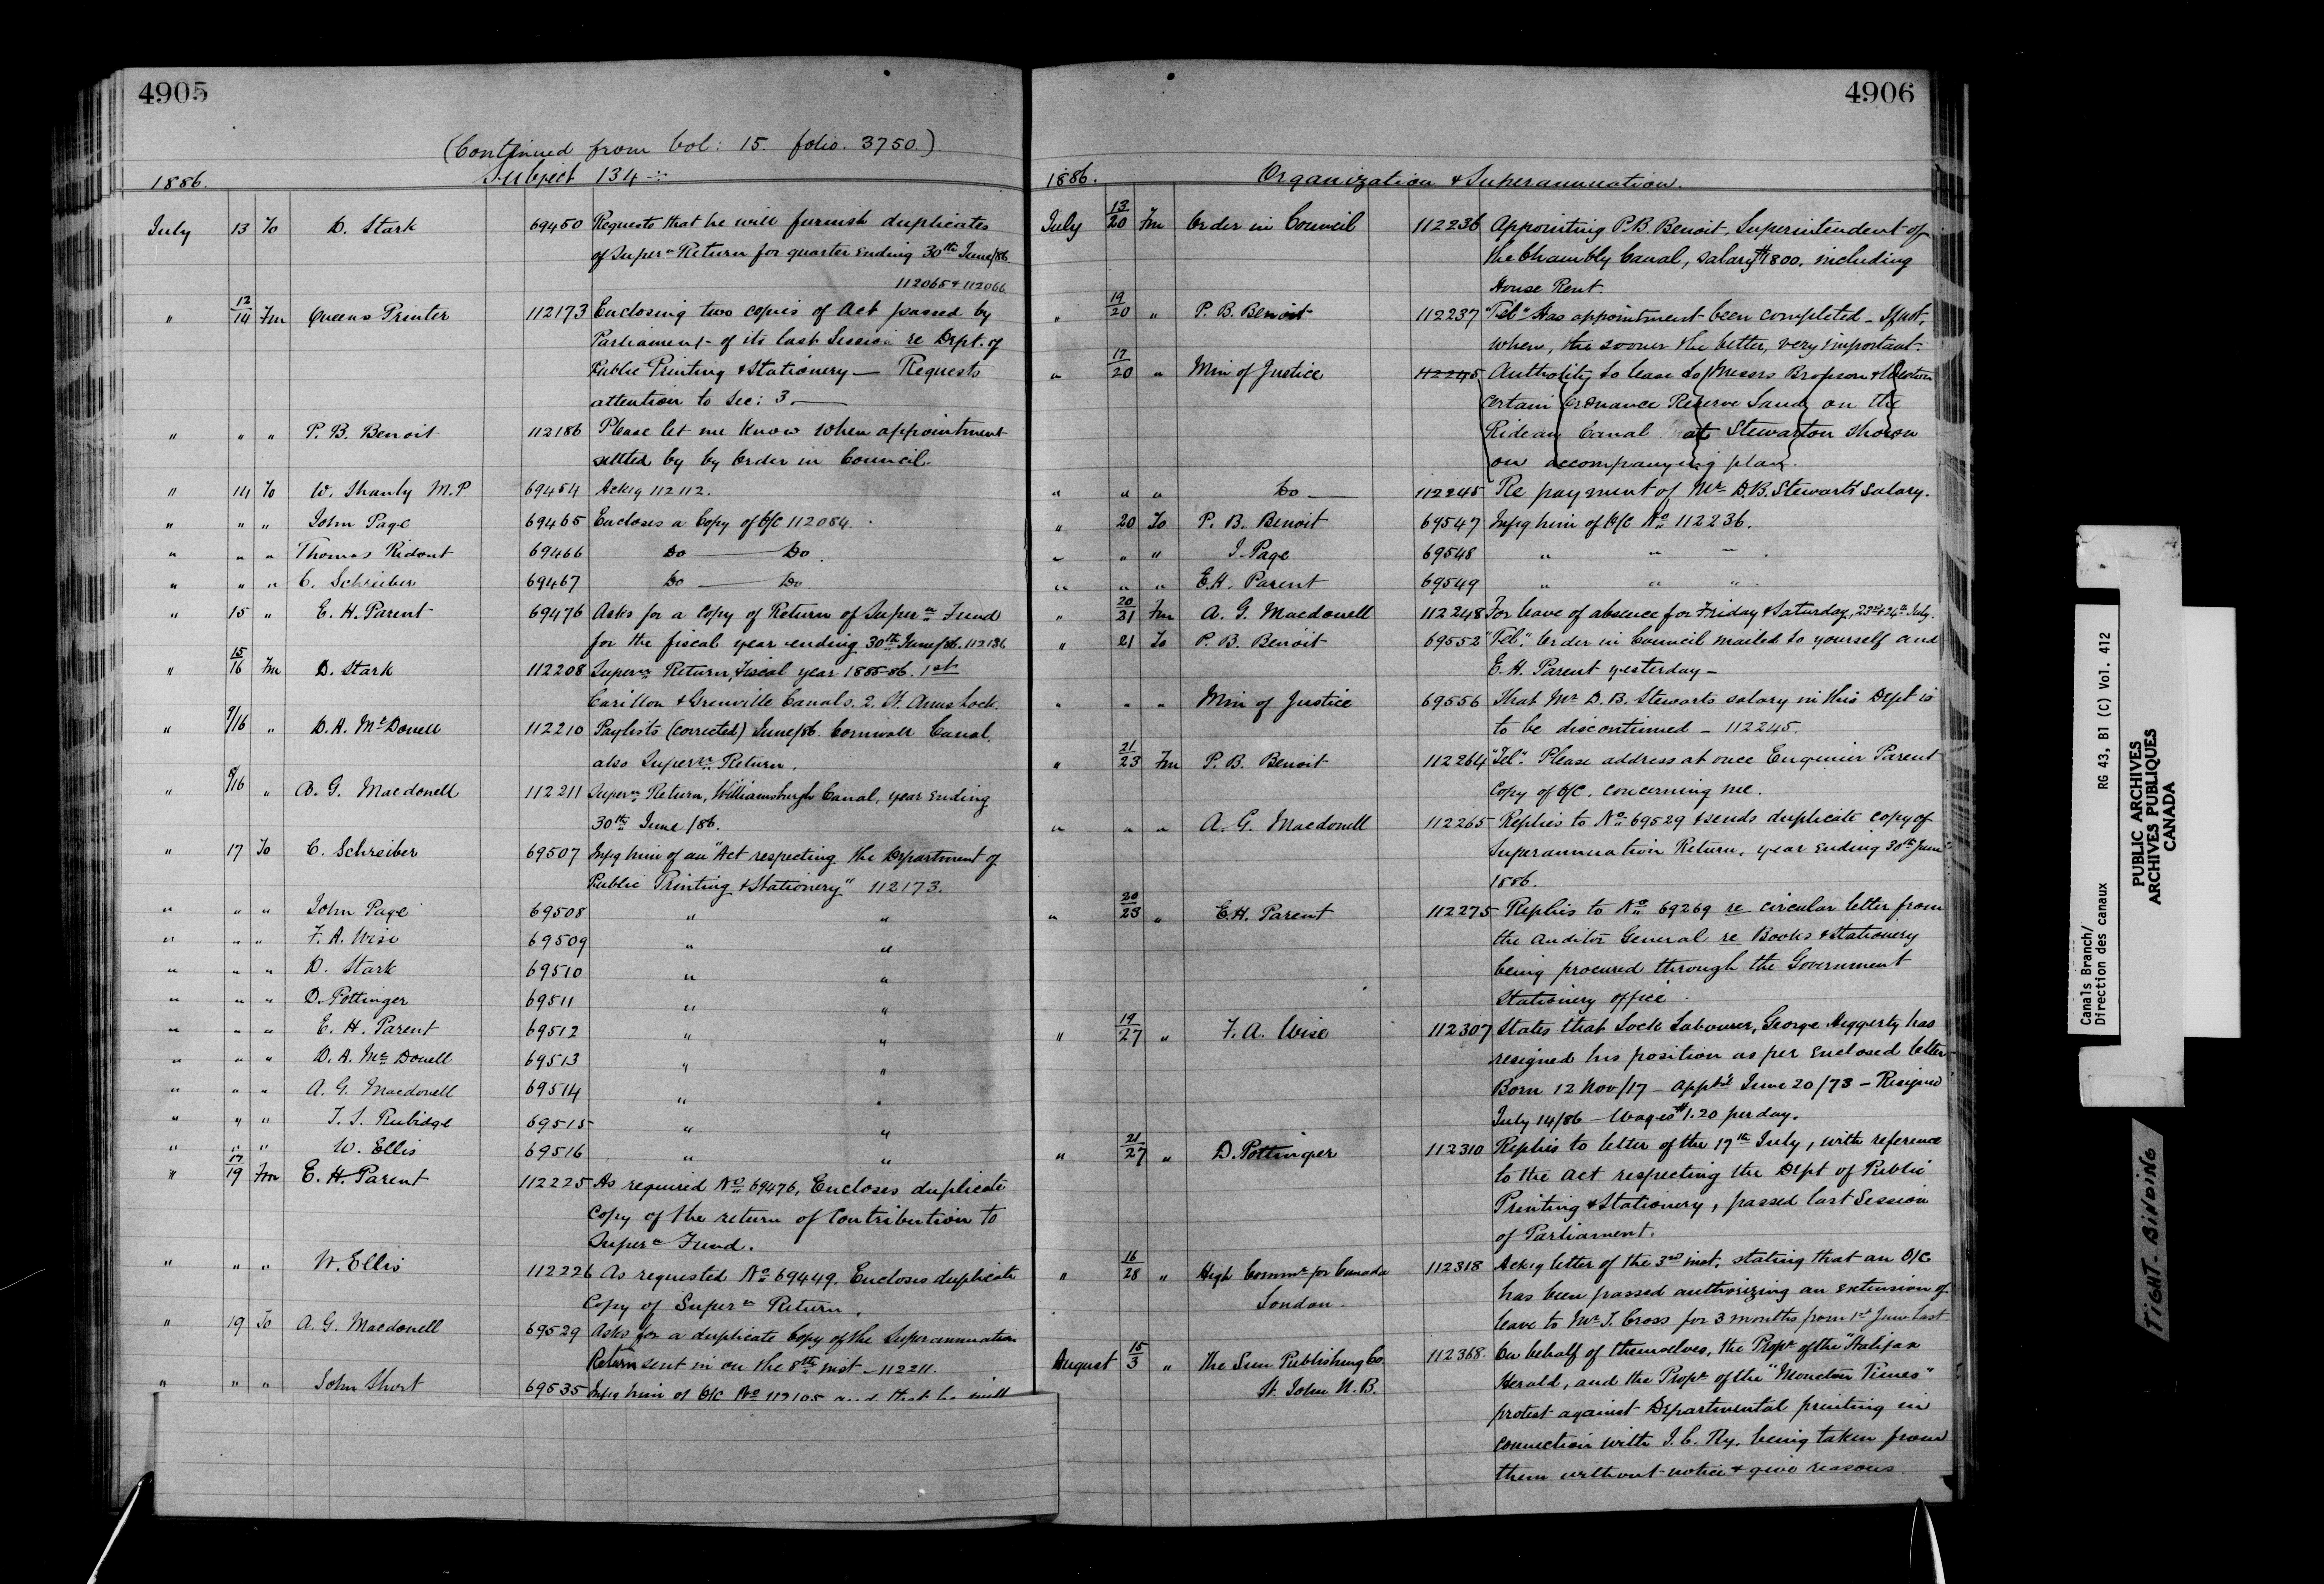 4905
(Continued from Vol: 15. folio. 3750.)
1886. Subject 134
July 13 To D. Stark 69450 Requests that he will furnish duplicates
of Super n Return for quarter ending 30th June/86
112065 & 112066.
" 12/14 Fm Queens Printer 112173 Enclosing two copies of Act passed by
Parliament of its last Session re Dept. of
Public Printing & Stationery — Requests
attention to Sec: 3. —
" " " P. B. Benoit 112186 Please let me know when appointment
settled by by Order in Council.
" 14 To W. Shanly M.P 69454 Ackg 112112.
" " " John Page 69465 Encloses a Copy of O/C 112084.
" " " Thomas Ridout 69466 Do — Do
" " " C. Schreiber 69467 Do — Do
" 15 " E. H. Parent 69476 Asks for a Copy of Return of Super n Fund
for the fiscal year ending 30th June/86. 112136
" 15/16 Fm D. Stark 112208 Super n Return, Fiscal year 1885-86. 1st
Carillon & Grenville Canals. 2. St. Annes Lock.
" 9/16 " D. A. McDonell 112210 Paylists (corrected) June/86. Cornwall Canal,
also Super n Return.
" 8/16 " A. G. Macdonell 112211 Super n Return, Williamsburgh Canal, year ending
30th June /86.
" 17 To C. Schreiber 69507 Infg him of an "Act respecting the Department of
Public Printing & Stationery" 112173.
" " " John Page 69508 " "
" " " F. A. Wise 69509 " "
" " " D. Stark 69510 " "
" " " D. Pottinger 69511 " "
" " " E. H. Parent 69512 " "
" " " D. A. McDonell 69513 " "
" " " A. G. Macdonell 69514 " "
" " " T. S. Rubidge 69515 " "
" " " W. Ellis 69516 " "
" 17/19 Fm E. H. Parent 112225 As required No 69476, Encloses duplicate
Copy of the return of Contribution to
Super n Fund.
" " " W. Ellis 112226 As requested No 69449. Encloses duplicate
Copy of Super n Return.
" 19 To A. G. Macdonell 69529 Asks for a duplicate Copy of the Superannuation
Return sent in on the 8th inst — 112211.
" " " John Short 69535 Infg him of O/C No 112105 and that he will
4906
1886. Organization & Superannuation.
July 13/20 Fm Order in Council 112236 Appointing P. B. Benoit, Superintendent of
the Chambly Canal, salary $1800. including
House Rent.
" 19/20 " P. B. Benoit 112237 "Tel" Has appointment been completed — If not,
when, the sooner the better, very important.
" 17/20 " Min of Justice 112245 Authority to lease to Messrs Bronson & Weston
certain Ordnance Reserve Land on the
Rideau Canal at Stewarton shown
on accompanying plan.
" " " Do — 112245 Re payment of Mr D. B. Stewarts Salary.
" 20 To P. B. Benoit 69547 Infg him of O/C No 112236.
" " " J. Page 69548 " " "
" " " E. H. Parent 69549 " " "
" 20/21 Fm A. G. Macdonell 112248 For leave of absence for Friday & Saturday, 23rd & 24th July.
" 21 To P. B. Benoit 69552 "Tel". Order in Council mailed to yourself and
E. H. Parent yesterday —
" " " Min of Justice 69556 That Mr D. B. Stewarts salary in this Dept is
to be discontinued — 112245.
" 21/23 Fm P. B. Benoit 112264 "Tel". Please address at once Engineer Parent
Copy of O/C. concerning me.
" " " A. G. Macdonell 112265 Replies to No 69529 & sends duplicate copy of
Superannuation Return, year ending 30th June
1886.
" 20/23 " E. H. Parent 112275 Replies to No 69269 re circular letter from
the Auditor General re Books & Stationery
being procured through the Government
Stationery office.
" 19/27 " F. A. Wise 112307 States that Lock Labourer, George Heggerty has
resigned his position as per enclosed letter —
Born 12 Nov/17 — App'td June 20/73 — Resigned
July 14/86 — Wages $1.20 per day.
" 21/27 " D. Pottinger 112310 Replies to letter of the 17th July, with reference
to the act respecting the Dept of Public
Printing & Stationery, passed last Session
of Parliament.
" 16/28 " High Commr for Canada 112318 Ackg letter of the 3rd inst, stating that an O/C
London. has been passed authorizing an extension of
leave to Mr J. Cross for 3 months from 1st June last
August 15/3 " The Sun Publishing Co. 112368. On behalf of themselves, the Propr of the "Halifax
St. John N.B. Herald, and the Propr of the "Moncton Times"
protest against Departmental printing in
connection with I. C. Ry. being taken from
them without notice & give reasons.
Canals Branch/
Direction des canaux
RG 43, B1 (C) Vol. 412
PUBLIC ARCHIVES
ARCHIVES PUBLIQUES
CANADA
TIGHT-BINDING